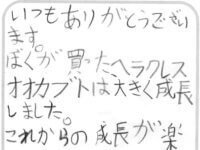 いつもありがとうござい
ます。
ぼくが買ったヘラクレス
オオカブトは大きく成長
しました。
これからの成長が楽